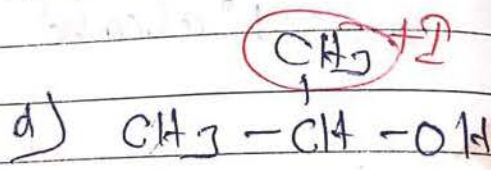 CH3 +I
d) CH3 - CH - OH